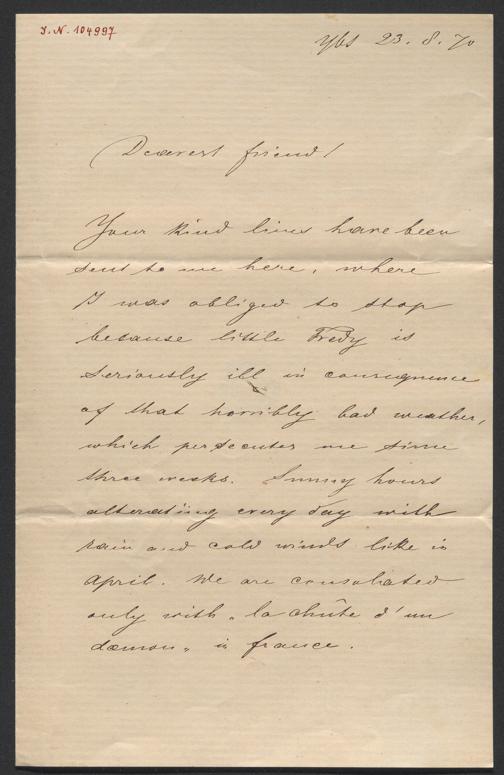 I. N. 104997
Ybs 23. 8. 70
Dearest friend!
Your kind lines have been
sent to me here, where
I was obliged to stop
because little Fredy is
seriously ill in consequence
of that horribly bad weather,
which persecutes me since
three weeks. Sunny hours
alterating every day with
rain and cold winds like in
April. We are consolated
only with „la chûte d'un
dæmon„ in france.